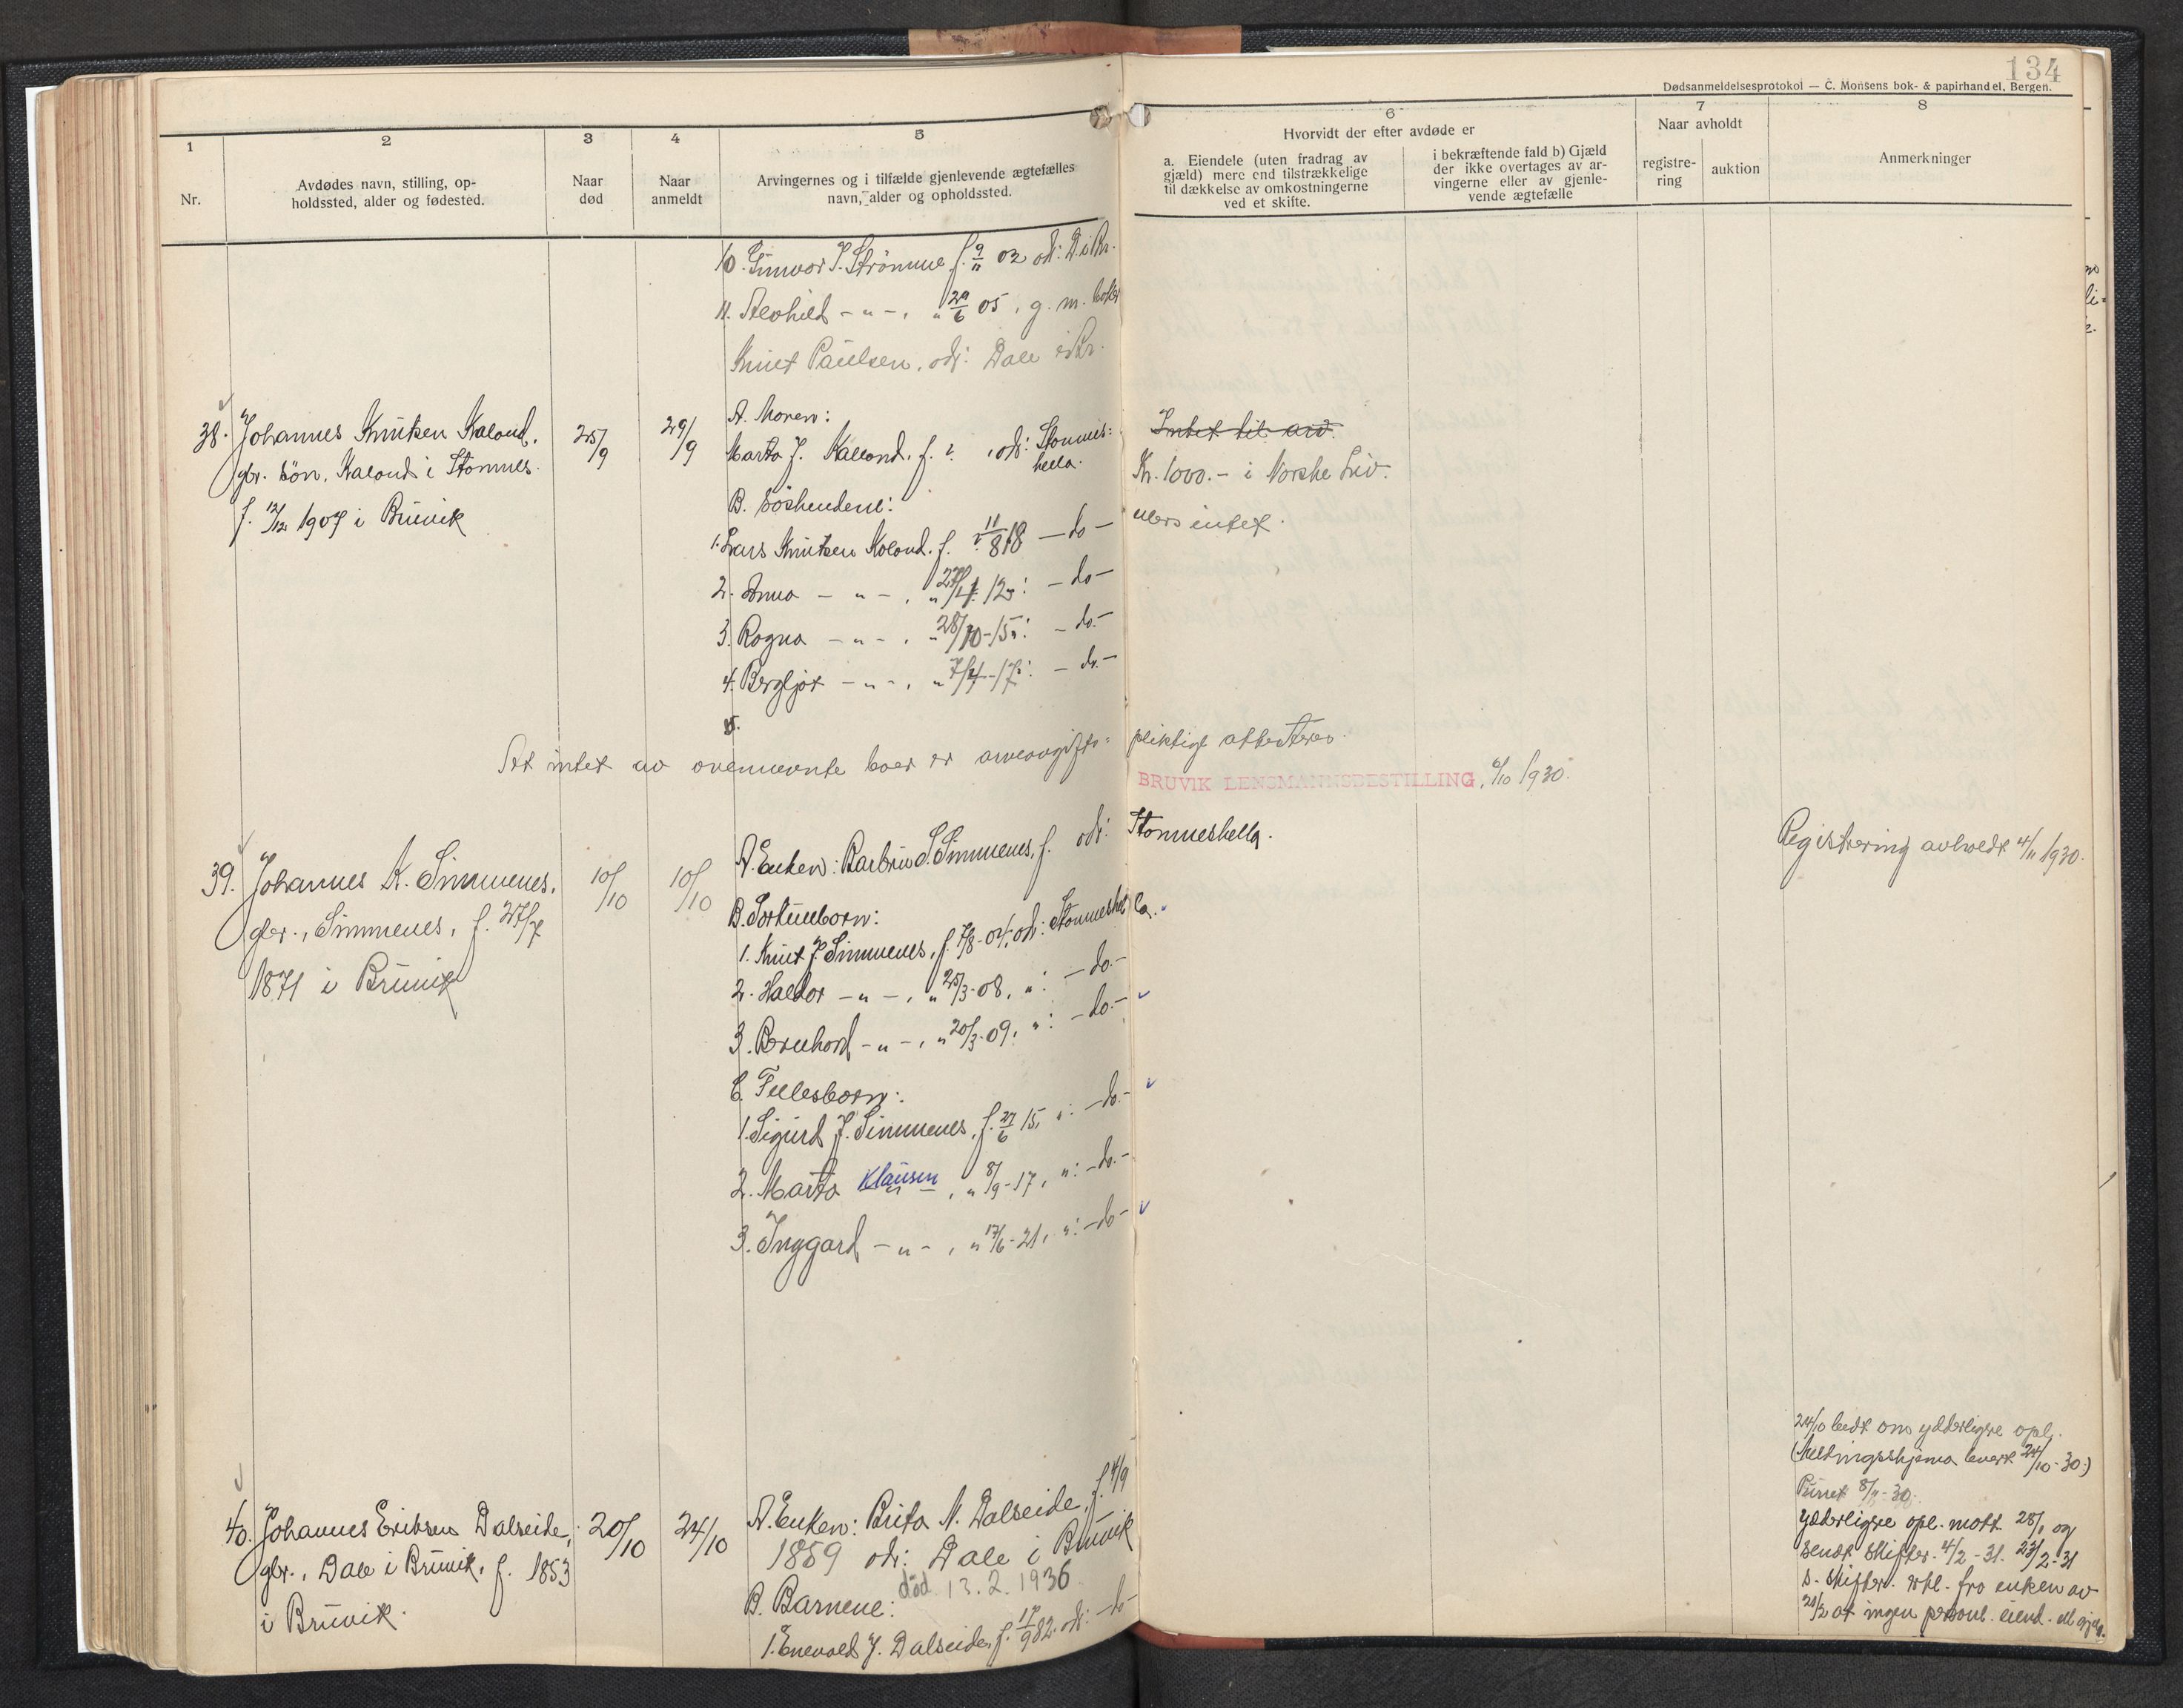 134
Dødsanmeldelsesprotokol — C. Monsens bok- & papirhandel, Bergen.
1
Nr.
2
Avdødes navn, stilling, op-
holdssted, alder og fødested.
3
Naar
død
4
Naar
anmeldt
5
Arvingernes og i tilfælde gjenlevende ægtefælles
navn, alder og opholdssted.
6
Hvorvidt der efter avdøde er
a. Eiendele (uten fradrag av
gjæld) mere end tilstrækkelige
til dækkelse av omkostningerne
ved et skifte.
i bekræftende fald b) Gjæld
der ikke overtages av ar-
vingerne eller av gjenle-
vende ægtefælle
7
Naar avholdt
registre-
ring
auktion
8
Anmerkninger
10. Gunvor J. Strømme f. 9/11 02 adr: D. i Br.
11. Alvhild - " - , " 29/6 05, g. m.
Knut Paulsen, adr: Dale i Br.
38. Johannes Knutsen Kaland,
gbr. søn, Kaland i Stamnes.
f. 12/12 1907 i Bruvik
25/9
29/9
A. Moren:
Marta J. Kaland, f. ? , adr: Stamnes-
hella.
B. Søskendene:
1. Lars Knutsen Kaland, f. 11/8 18 — do —
2. Anna — " — , " 27/4 12 : — do —
3. Ragna — " — , " 28/10-15 : — do. —
4. Bergljot — " — , " 7/4-17 : — do. —
5.
Intet til arv.
Kr. 1000.- i Norske Liv.
ellers intet.
At intet av ovennevnte boer er arveavgifts- pliktige attesteres.
BRUVIK LENSMANNSBESTILLING, 6/10 1930.
39. Johannes K. Simmenes,
gbr., Simmenes, f. 27/7
1871 i Bruvik
10/10
10/10
A. Enken: Barbru S. Simmenes, f. adr: Stamneshella.
B. Særkulborn:
1. Knut J. Simmenes, f. 7/8-04, adr: Stamneshella.
2. Haldor — " — , " 25/3-08, " : — do. —
3. Bernhard — " — , " 20/3-09, " : — do. —
C. Fellesborn:
1. Sigurd J. Simmenes, f. 27/6 15, " : — do. —
2. Marta Klausen , " 8/9-17, " : — do. —
3. Inggard — " — , " 17/6-21, " : — do —
Registrering avholdt 4/11 1930.
40. Johannes Eriksen Dalseide,
gbr., Dale i Bruvik, f. 1853
i Bruvik.
20/10
24/10
A. Enken: Brita N. Dalseide, f. 4/9
1859 adr: Dale i Bruvik
død 13.2.1936
B. Barnene:
1. Enevald J. Dalseide, f. 17/9 82. adr: — do —
24/10 bedt om ydderligere opl.
(Meldingsskjema levert 24/10-30.)
Purret 8/11-30.
Ydderligere opl. mott. 28/1 og
sendt skifter. 4/2-31. 23/2-31
s. skifter. erkl. fra enken av
20/2 at ingen personl. eiend. el. gjeld.